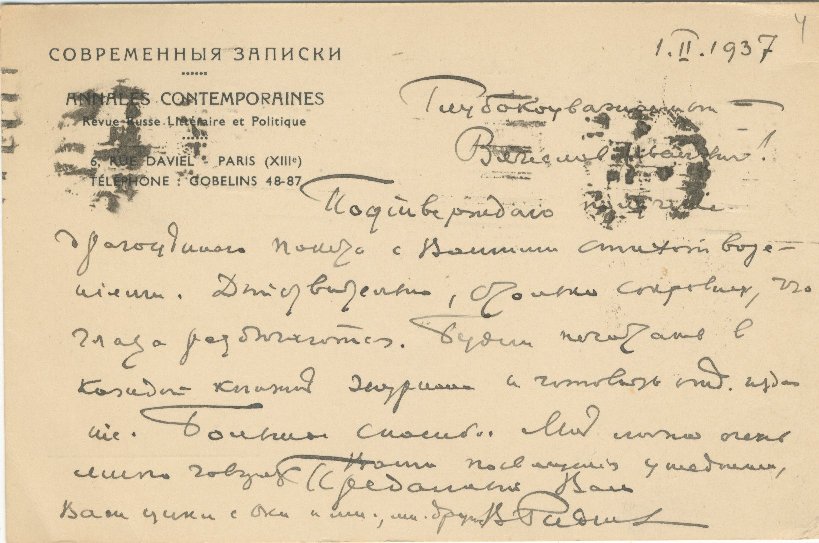 СОВРЕМЕННЫЯ ЗАПИСКИ
ANNALES CONTEMPORAINES
Revue Russe Littéraire et Politique
6, RUE DAVIEL PARIS (XIIIᵉ)
TÉLÉPHONE : GOBELINS 48-87
4
1.II.1937
Глубокоуважаемый
Вячеслав Иванович!
Подтверждаю получение
драгоценного пакета с Вашими стихотворе-
ниями. Действительно, столько сокровищ, что
глаза разбегаются. Будем печатать в
каждой книжке журнала и готовить отд. изда
ние. Большое спасибо. Мне лично очень
Ваши
Преданный Вам
В Руднев